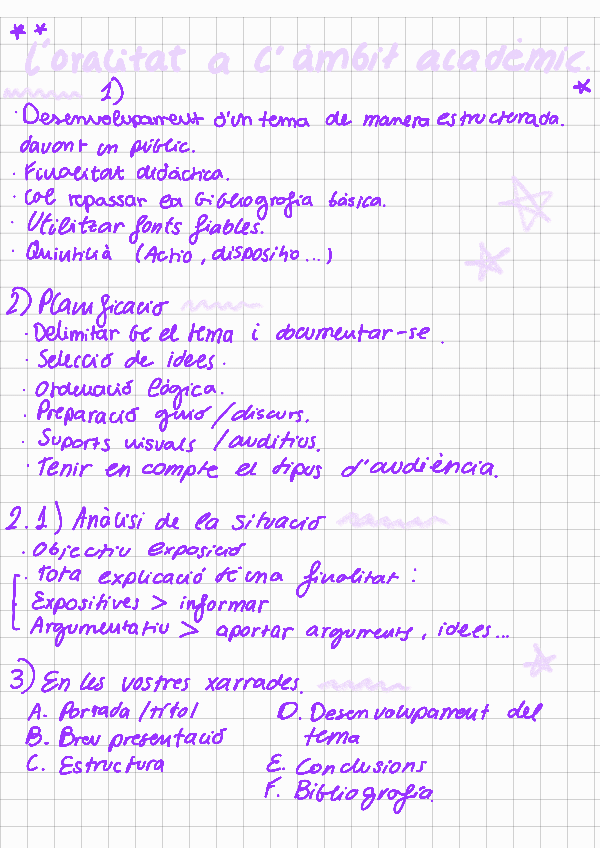 L'oralitat a l'àmbit acadèmic.
1)
· Desenvolupament d'un tema de manera estructurada.
davant un públic.
· Finalitat didàctica.
· Cal repassar la bibliografia bàsica.
· Utilitzar fonts fiables.
· Quintilià (Actio, dispositio...)
2) Planificació
· Delimitar bé el tema i documentar-se.
· Selecció de idees.
· Ordenació lògica.
· Preparació guió/discurs.
· Suports visuals /auditius.
· Tenir en compte el tipus d'audiència.
2.1) Anàlisi de la situació
· Objectiu exposició
· Tota explicació té una finalitat:
Expositives > informar
Argumentatiu > aportar arguments, idees...
3) En les vostres xarrades.
A. Portada /títol
B. Breu presentació
C. Estructura
D. Desenvolupament del
tema
E. Conclusions
F. Bibliografia.